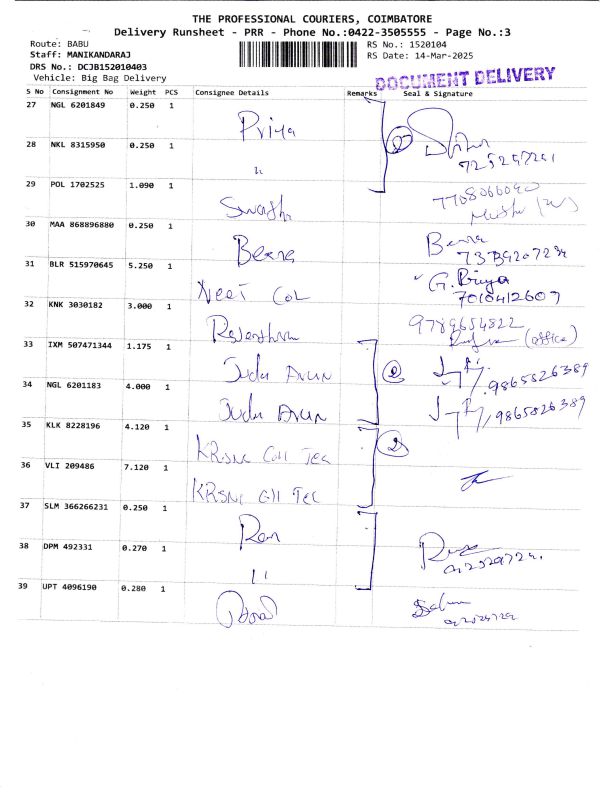 THE PROFESSIONAL COURIERS, COIMBATORE
Delivery Runsheet - PRR - Phone No.:0422-3505555 - Page No.:3
Route: BABU RS No.: 1520104
Staff: MANIKANDARAJ RS Date: 14-Mar-2025
DRS No.: DCJB152010403
Vehicle: Big Bag Delivery
DOCUMENT DELIVERY
S No Consignment No Weight PCS Consignee Details Remarks Seal & Signature
27 NGL 6201849 0.250 1 Priya 2
28 NKL 8315950 0.250 1 "
29 POL 1702525 1.090 1
30 MAA 868896880 0.250 1
31 BLR 515970645 5.250 1 G. Priya
7010412607
32 KNK 3030182 3.000 1 9789654822
(office)
33 IXM 507471344 1.175 1 Judu Arun 2 9865826389
34 NGL 6201183 4.000 1 Judu Arun 9865826389
35 KLK 8228196 4.120 1 2
36 VLI 209486 7.120 1
37 SLM 366266231 0.250 1
38 DPM 492331 0.270 1 "
39 UPT 4096190 0.280 1